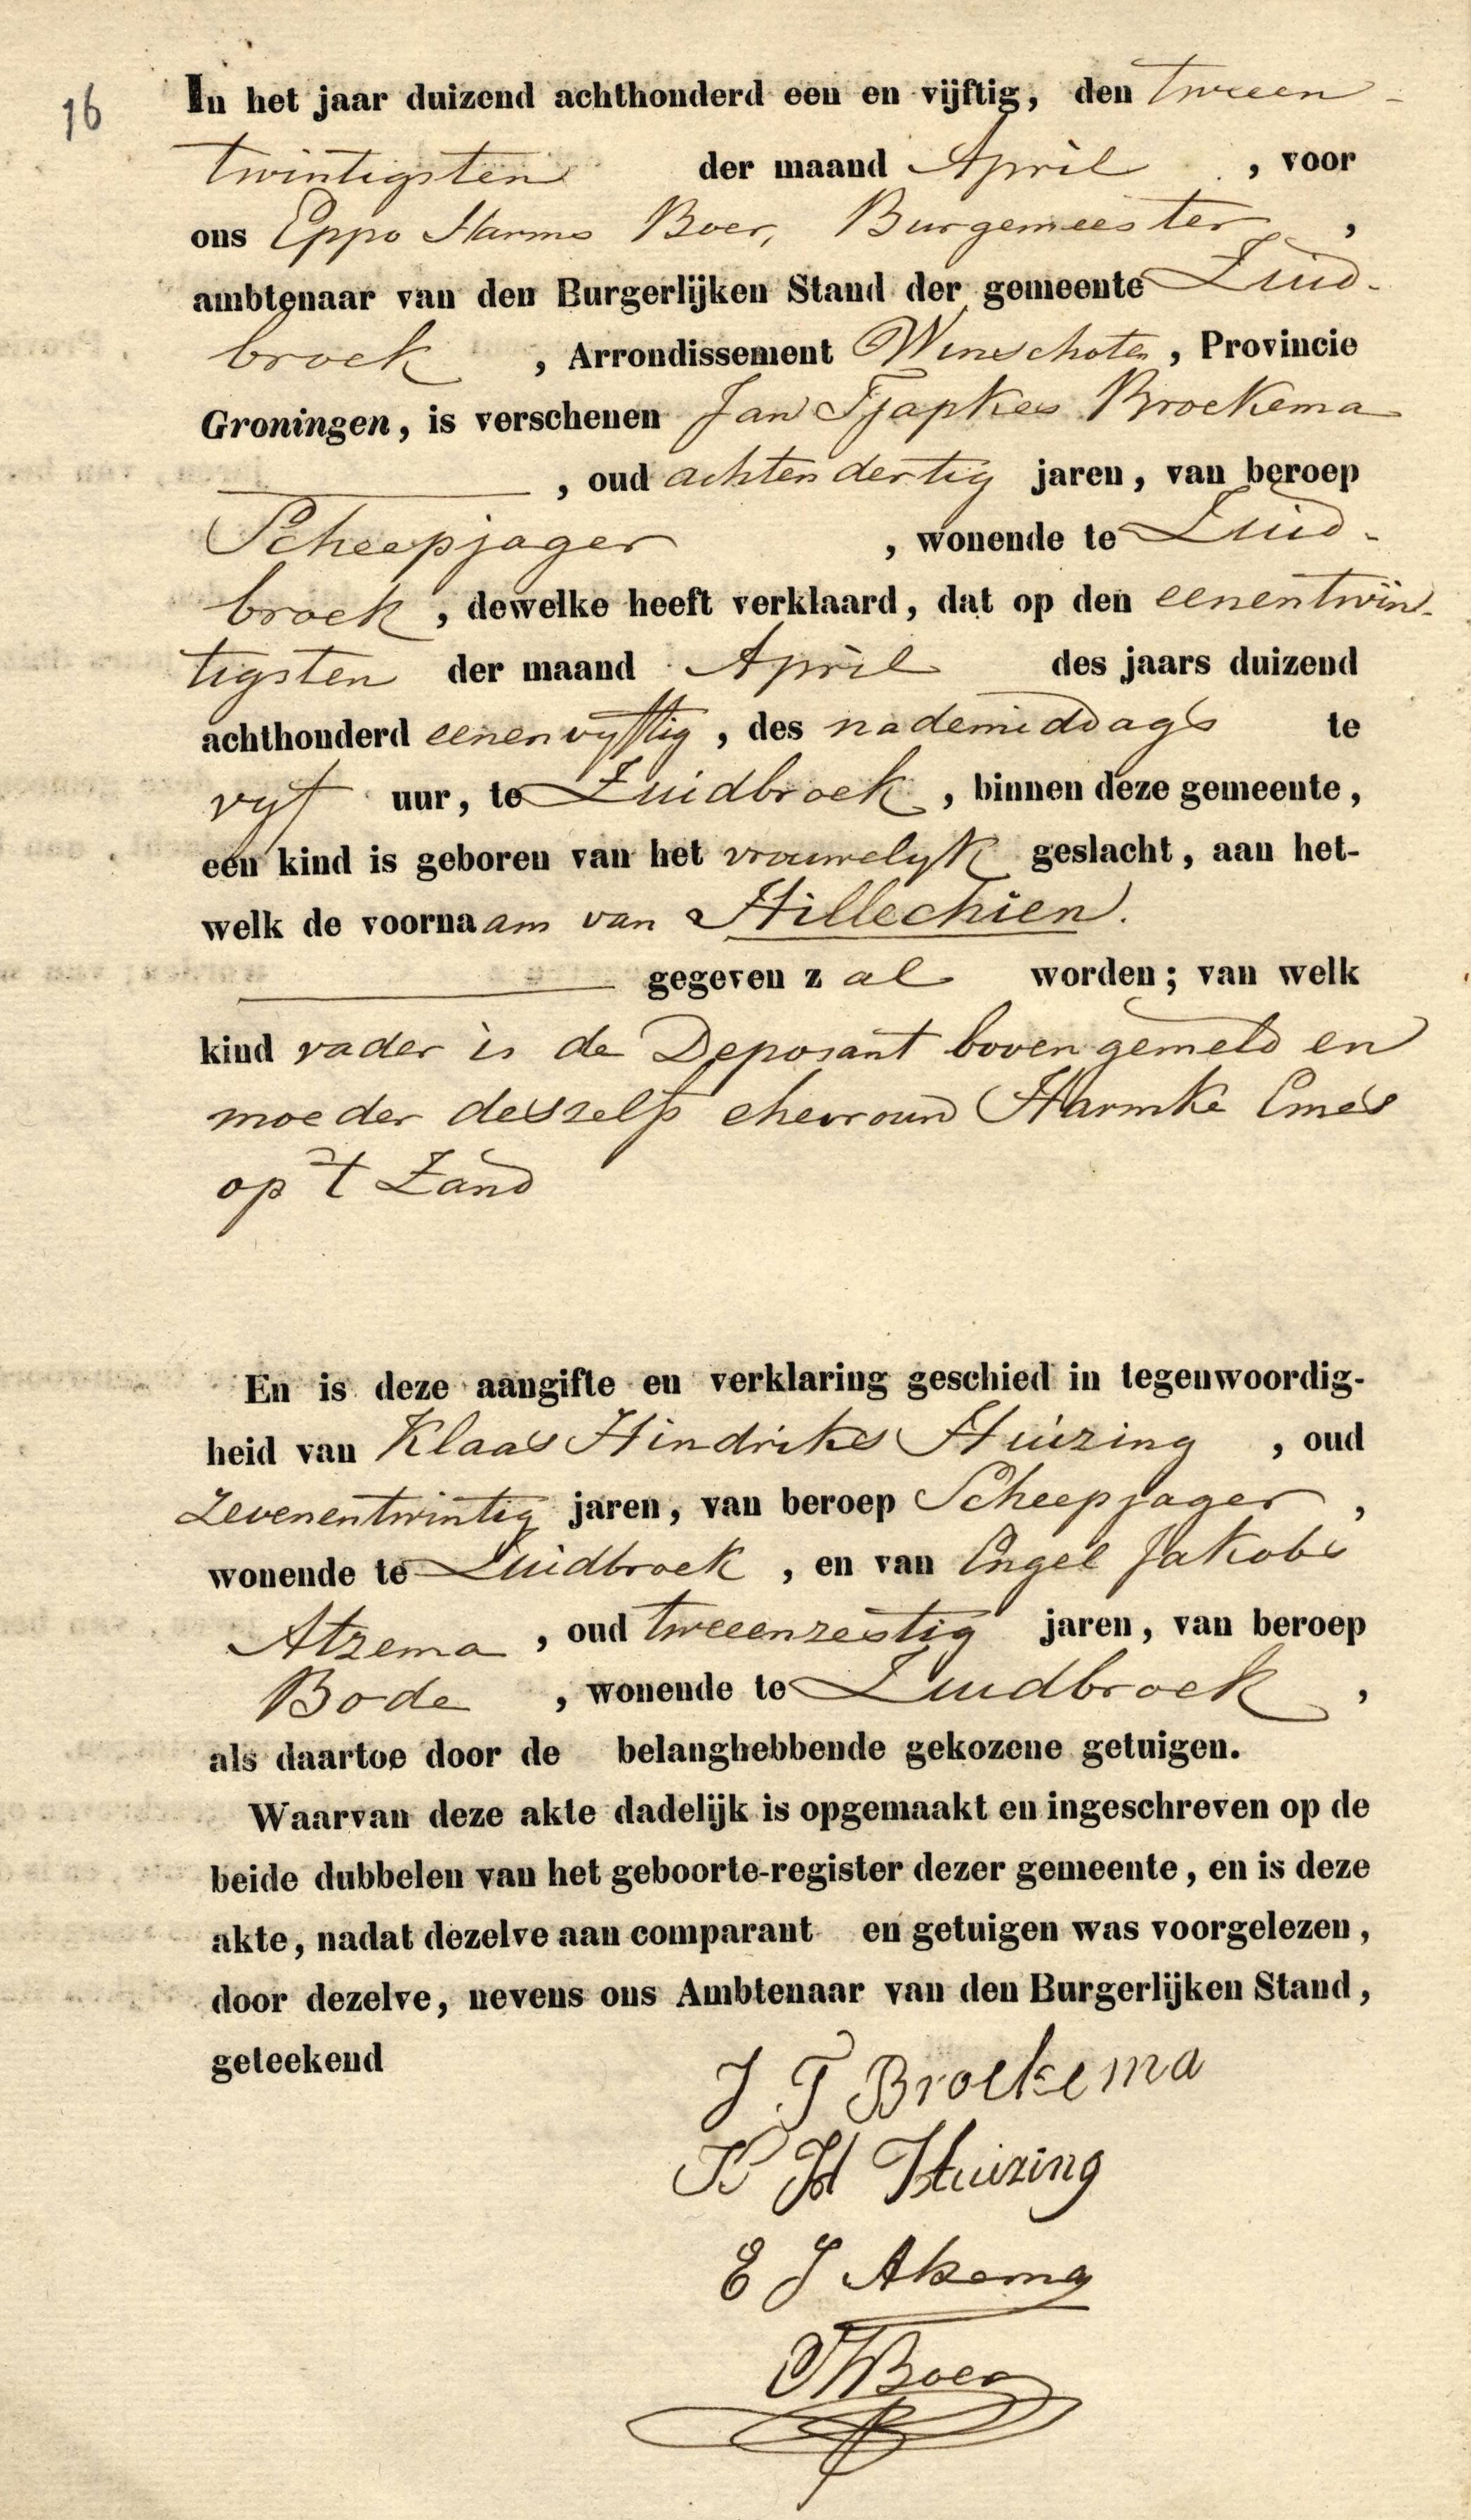 16
In het jaar duizend achthonderd een en vijftig, den tweeen-
twintigsten der maand April, voor
ons Eppo Harms Boer, Burgemeester,
ambtenaar van den Burgerlijken Stand der gemeente Zuid-
broek, Arrondissement Winschoten, Provincie
Groningen, is verschenen Jan Tjapkes Broekema
, oud achtendertig jaren, van beroep
Scheepjager, wonende te Zuid-
broek, dewelke heeft verklaard, dat op den eenentwin-
tigsten der maand April des jaars duizend
achthonderd eenenvyftig, des nademiddags te
vyf uur, te Zuidbroek, binnen deze gemeente,
een kind is geboren van het vrouwelyk geslacht, aan het-
welk de voornaam van Hillechien.
gegeven zal worden; van welk
kind vader is de Deposant bovengemeld en
moeder deszelfs ehevrouw Harmke Emes
op 't Zand
En is deze aangifte en verklaring geschied in tegenwoordig-
heid van Klaas Hindriks Huizing, oud
zevenentwintig jaren, van beroep Scheepjager,
wonende te Zuidbroek, en van Engel Jakobs
Atzema, oud tweeenzestig jaren, van beroep
Bode, wonende te Zuidbroek,
als daartoe door de belanghebbende gekozene getuigen.
Waarvan deze akte dadelijk is opgemaakt en ingeschreven op de
beide dubbelen van het geboorte-register dezer gemeente, en is deze
akte, nadat dezelve aan comparant en getuigen was voorgelezen,
door dezelve, nevens ons Ambtenaar van den Burgerlijken Stand,
geteekend
J. T Broekema
K H Huizing
E J Atzema
EHBoer